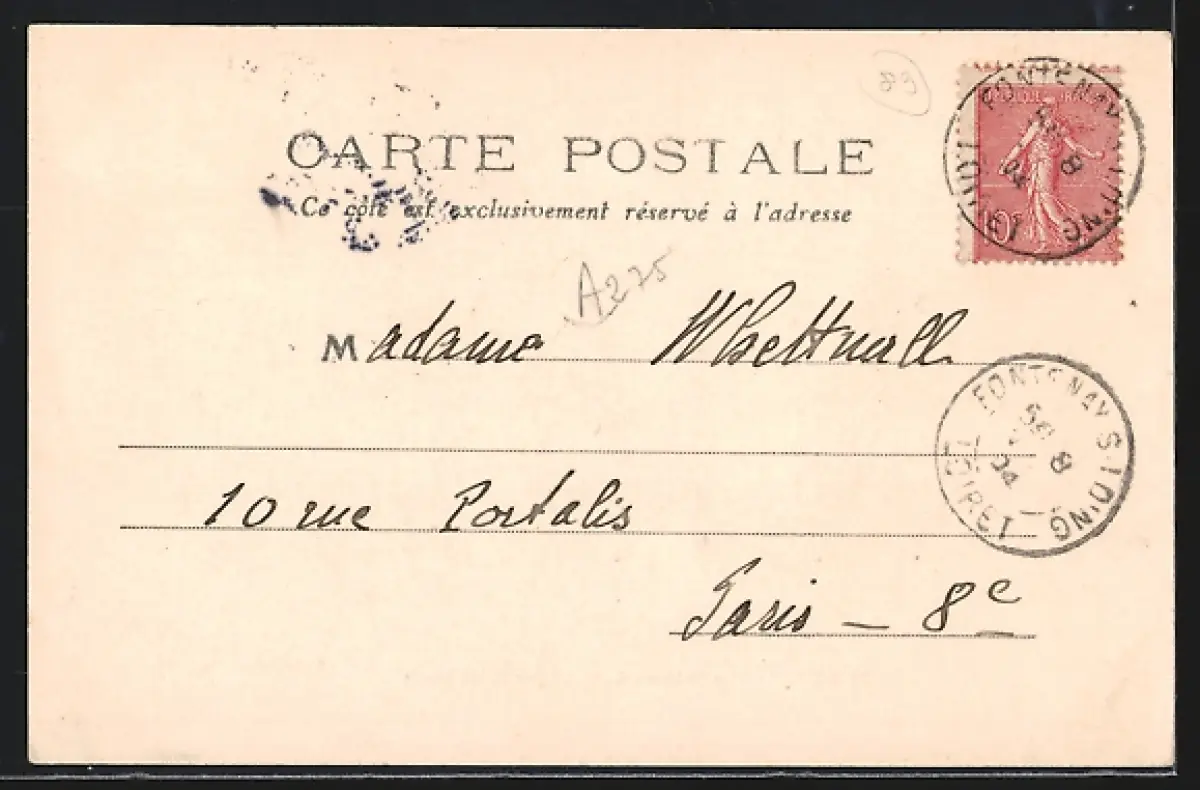 89
CARTE POSTALE
Ce côté est exclusivement réservé à l'adresse
A275
Madame Whettnall
10 rue Portalis
Paris - 8e
FONTENAY S. LOING
8
04
LOIRET
FONTENAY S. LOING
8
04
LOIRET
10